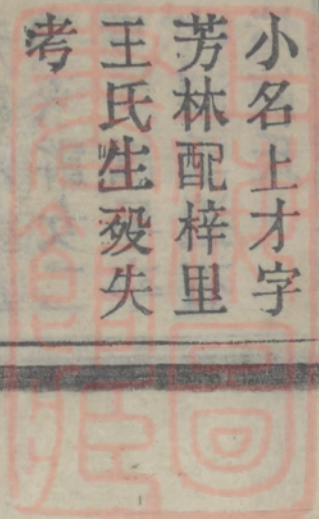 小名上才字
芳林配梓里
王氏生殁失
考